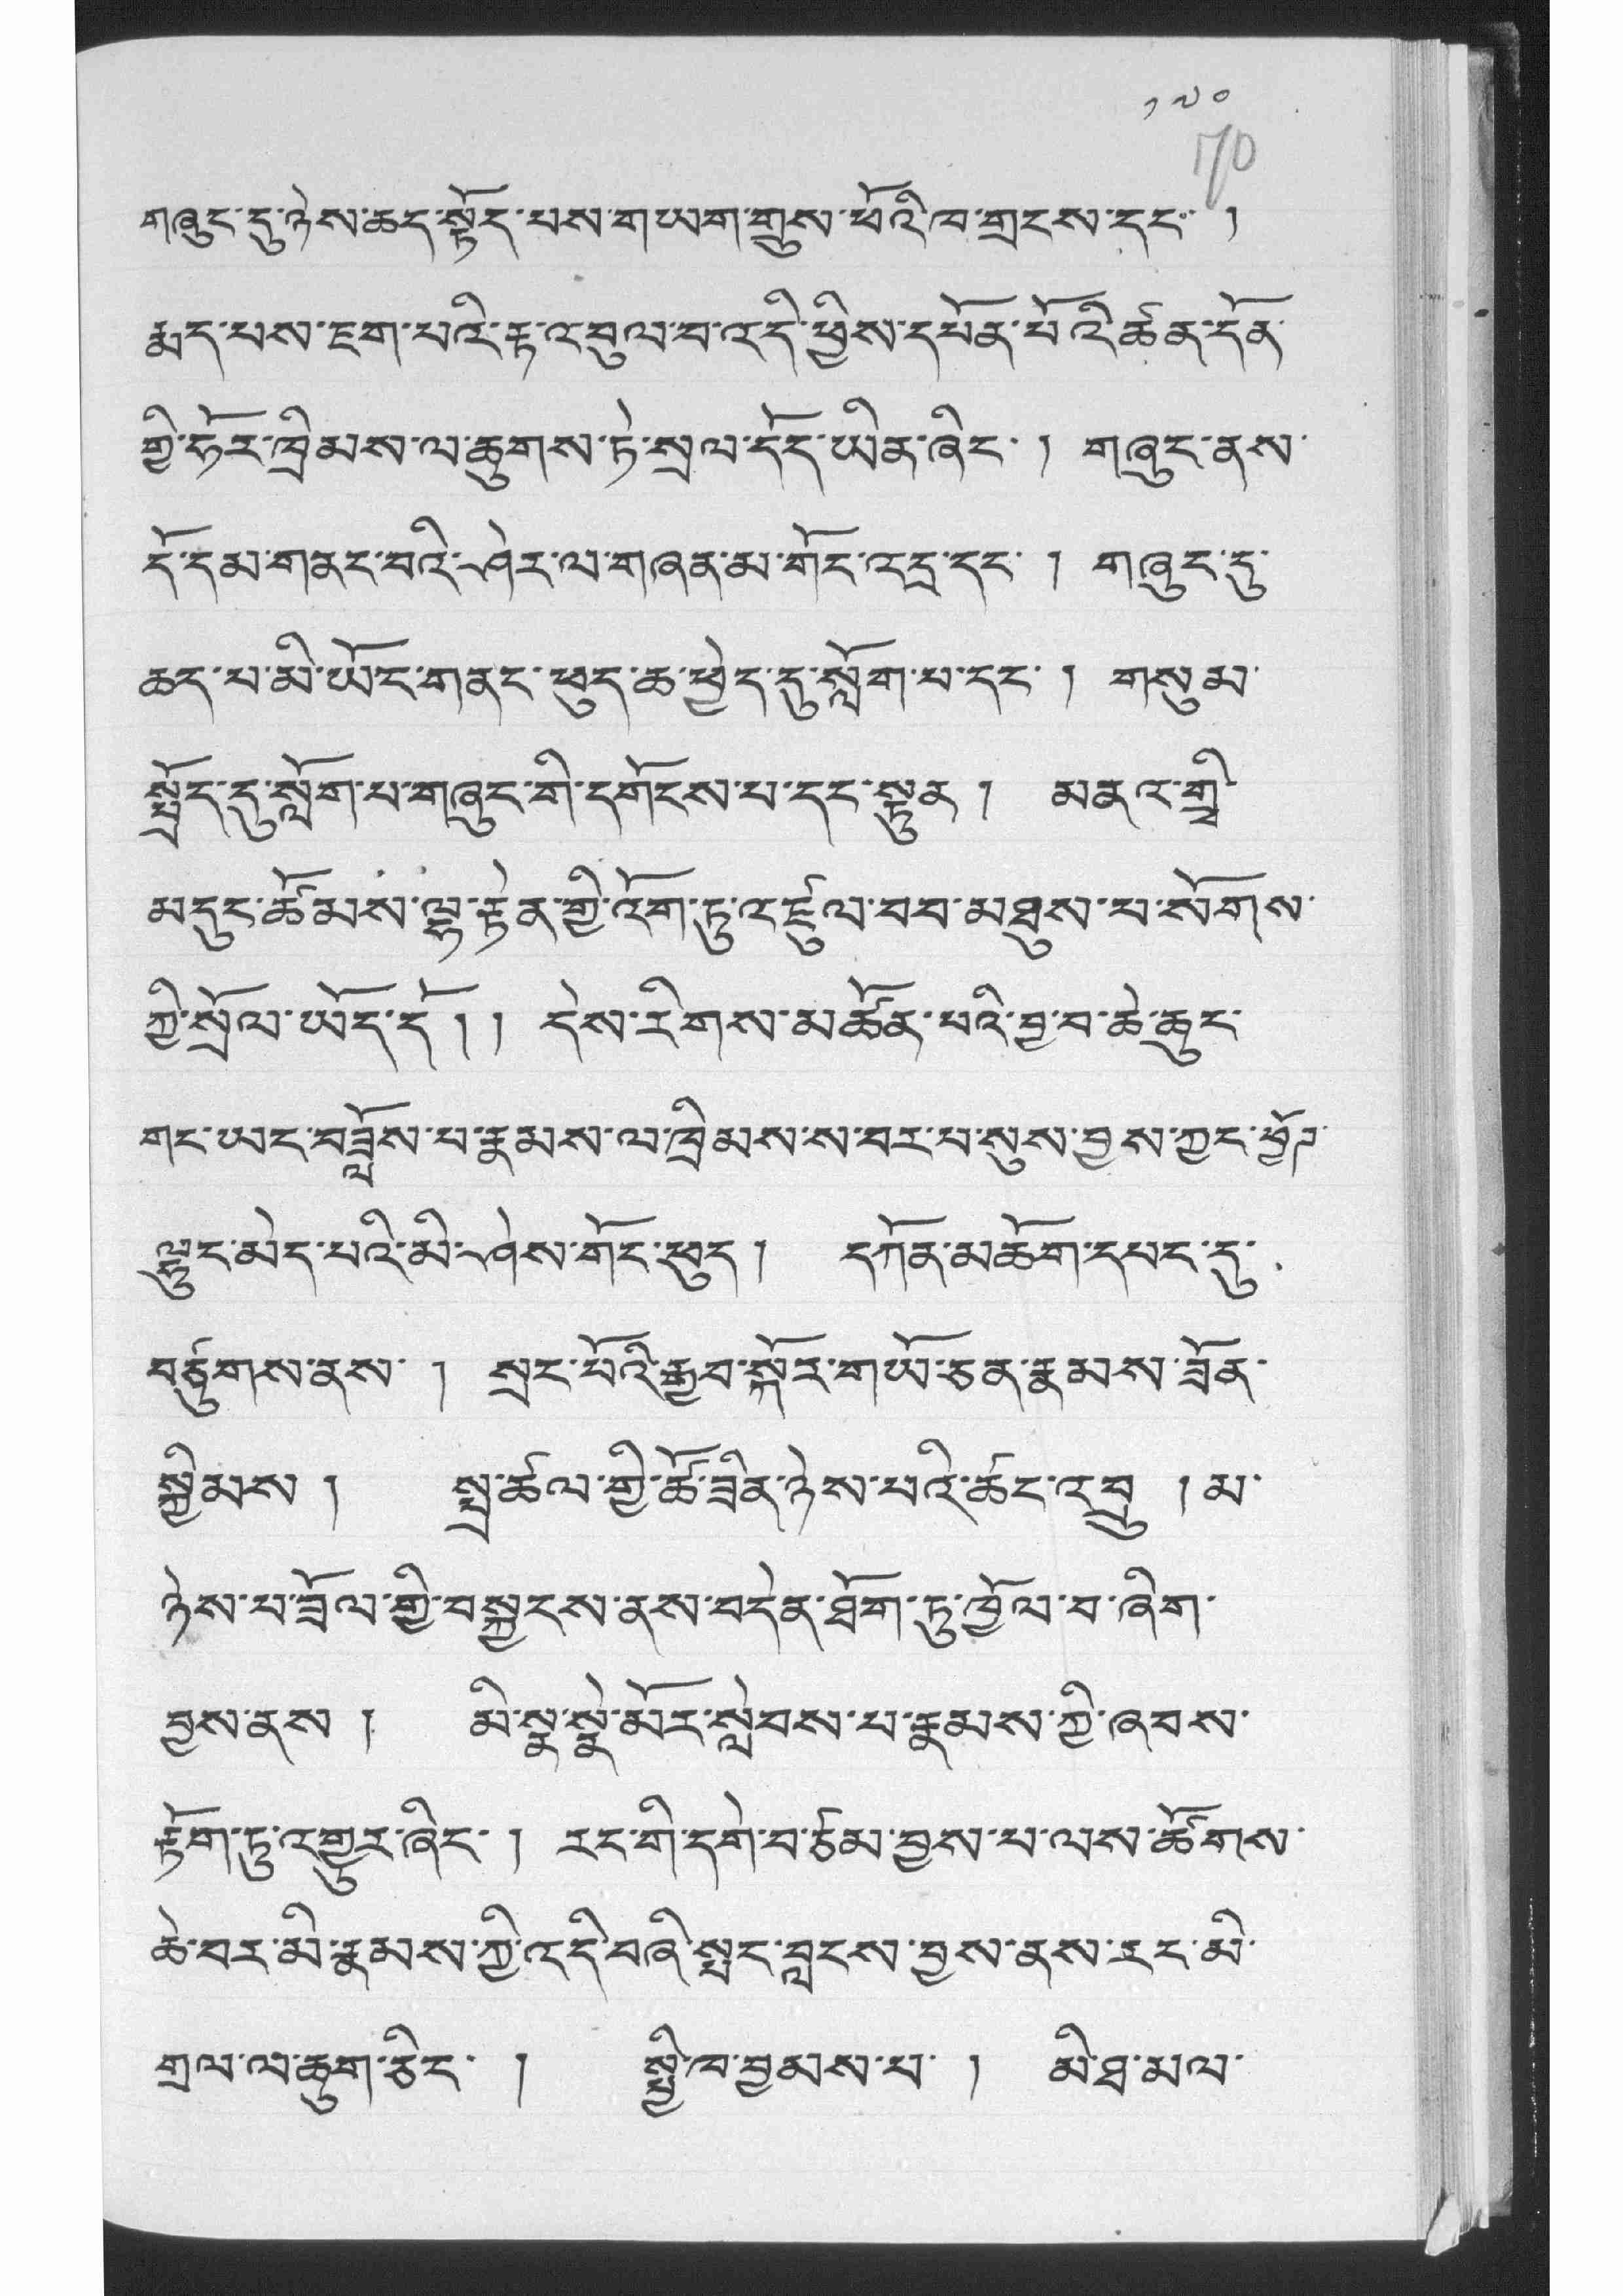 ༡༧༠
170
གཞུང་དུ་ཉེས་ཆད་སྟོད་པས་གཡག་གྲུས་ཕོའི་ཁ་གྲངས་དང་ །
རྨད་པས་ངག་པའི་རྟ་འབུལ་བ་འདི་ཕྱིས་དཔོན་པོའི་ཚན་དོན་
གྱི་ཧོར་ཁྲིམས་ལ་ཆུགས་ཏེ་སྲལ་དོད་ཡིན་ཞིང་ ། གཞུང་ནས་
དོ་དམ་གནང་བའི་ཤེར་ལ་གཞན་མ་གོང་འདྲ་དང་ ། གཞུང་དུ་
ཆད་པ་མི་ཡོང་གནང་ཕུད་ཆ་ཕྱེད་དུ་སློག་པ་དང་ ། གསུམ་
སྤྲོད་དུ་སློག་པ་གཞུང་གི་དགོངས་པ་དང་སྟུན ། མནའ་གྲྭི་
མདུང་ཚོམས་ལྷ་རྟེན་གྱི་འོག་ཏུ་འཛུལ་བབ་མཐུས་པ་སོགས་
ཀྱི་སྲོལ་ཡོད་དོ །། དེས་རིགས་མཚོན་པའི་བྱ་བ་ཆེ་ཆུང་
གང་ཡང་བཟློས་པ་རྣམས་ལ་ཁྲིམས་ས་བར་པ་སུས་བྱས་ཀྱང་ཕྱོད
ལྷུང་མེད་པའི་མི་ཤེས་གོང་ཕུད ། དཀོན་མཆོག་དཔང་དུ་
བཙུགས་ནས་ ། སྲང་པོའི་རྒྱབ་སྐོར་གཡོ་ཅན་རྣམས་ཟློན་
སྐྱིམས ། སྤྲ་ཚལ་གྱི་ཚོ་ཟིན་ཉེས་པའི་ཚང་འབྲུ ། མ་
ཉེས་པ་ཟོལ་གྱི་བསྐྱངས་ནས་བདེན་ཐོག་ཏུ་ཁྱོལ་བ་ཞིག་
བྱས་ནས ། མི་སྣ་སྣེ་མོར་སླེབས་པ་རྣམས་ཀྱི་ཞབས་
རྟོག་ཏུ་འགྱུར་ཞིང་ ། རང་གི་དགེ་བ་ཙམ་བྱས་པ་ལས་ཚོགས་
ཆེ་བར་མི་རྣམས་ཀྱི་འདི་བཞི་སྤང་བླངས་བྱས་ནས་རང་མི་
གྲལ་ལ་ཆུག་ཅིང་ ། སྤྱི་ཁ་བྱམས་པ་ ། མི་ཐ་མལ་